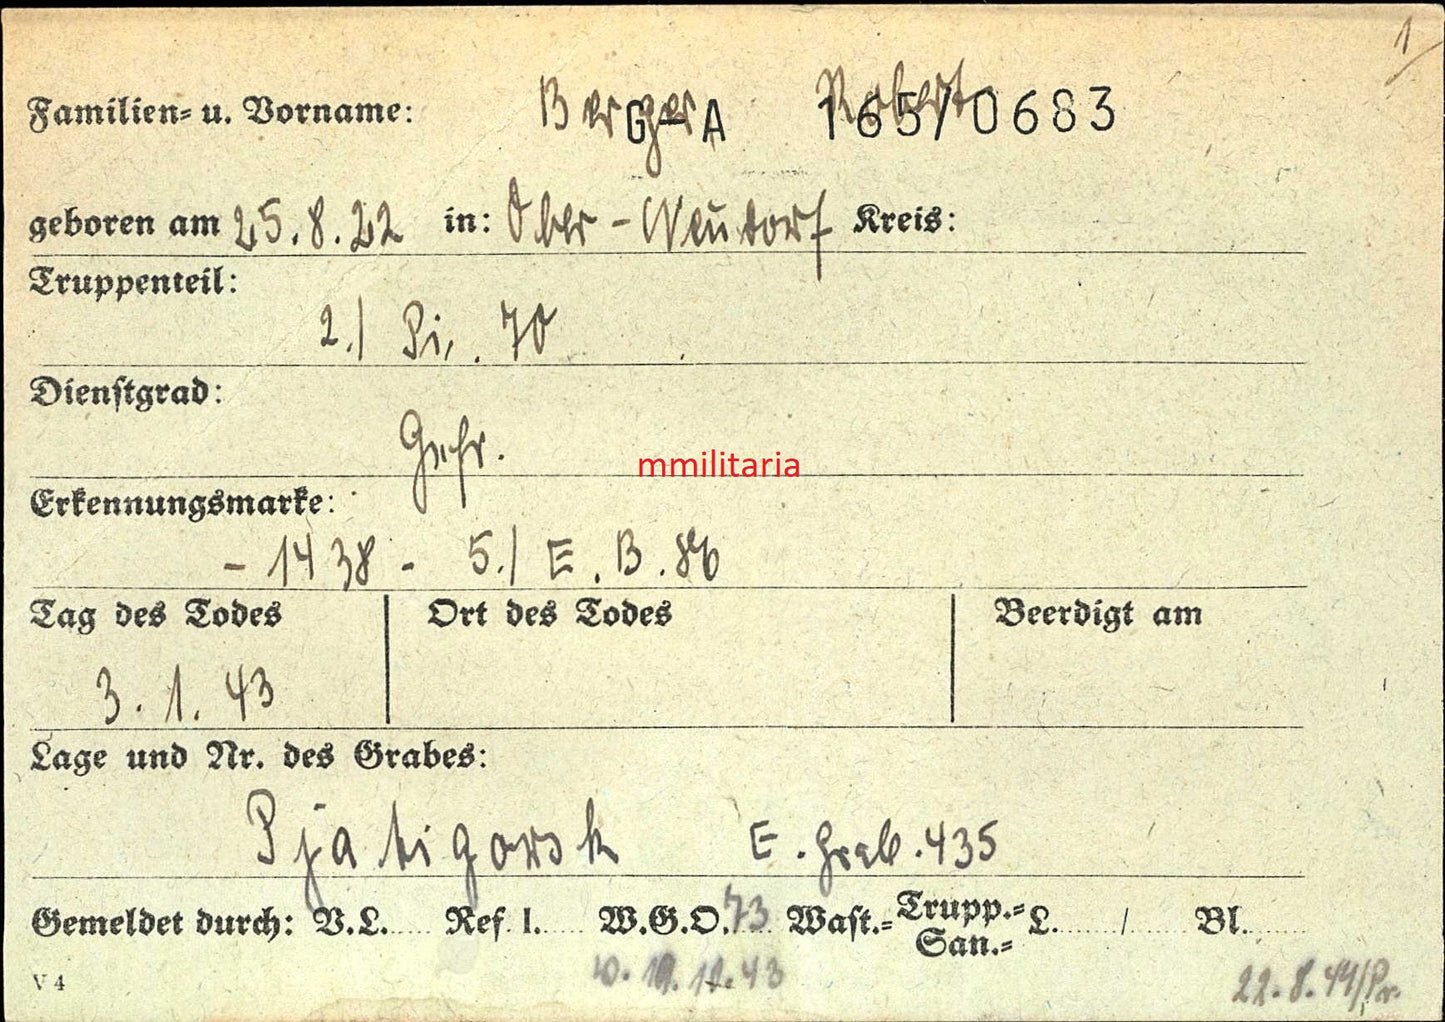 1
Familien- u. Vorname: Berger Robert
G-A 165/0683
geboren am 25.8.22 in: Ober-Neudorf Kreis:
Truppenteil:
2./ Pi. 70
Dienstgrad:
Gefr.
mmilitaria
Erkennungsmarke:
- 1438 - 5./ E.B. 86
Tag des Todes Ort des Todes Beerdigt am
3. 1. 43
Lage und Nr. des Grabes:
Pjatigorsk E.Grab.435
Gemeldet durch: V.L..... Ref. I..... W.G.O. 73 Wast.- Trupp.- San.- L......./....... Bl.......
V 4
19.12.43 22.8.44/Pr.